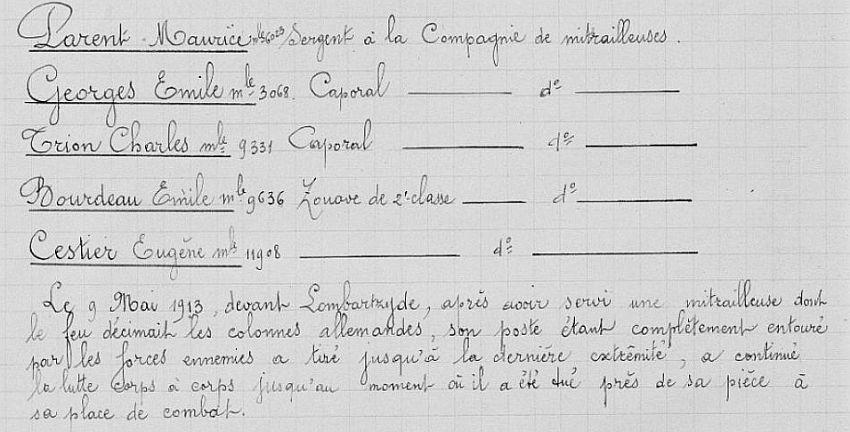 Parent Maurice mle 6023 Sergent à la Compagnie de mitrailleuses.
Georges Emile mle 3068. Caporal — do —
Trion Charles mle 9331 Caporal — do —
Bourdeau Emile mle 9636 Zouave de 2e classe — do —
Cestier Eugène mle 11908 — do —
Le 9 Mai 1913, devant Lombartzyde, après avoir servi une mitrailleuse dont
le feu décimait les colonnes allemandes, son poste étant complètement entouré
par les forces ennemies a tiré jusqu'à la dernière extrêmité, a continué
la lutte corps à corps jusqu'au moment où il a été tué près de sa pièce à
sa place de combat.